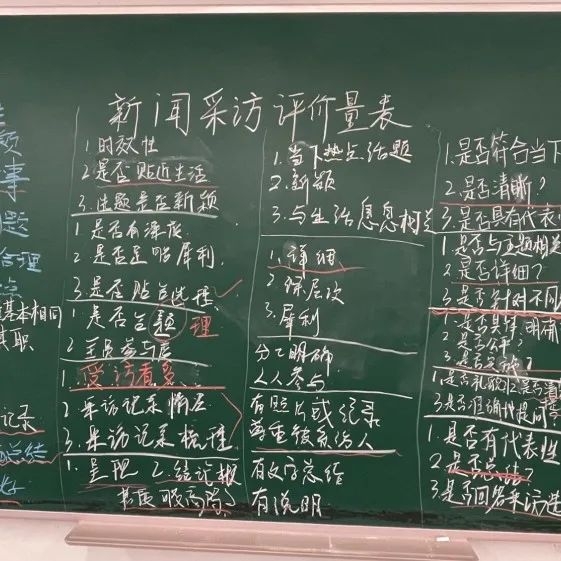 新闻采访评价量表
题
事
题
合理
点
基本相同
其职
记录
总结
1 时效性
2.是否贴近生活
3.主题是否新颖
1 是否有深度
2.是否足够犀利.
3.是否贴合选题
1 是否合题
理
2 全员参与度
1. 受访者多
2 采访记录情况
3.采访记录梳理
1. 呈现 2.结论
1.当下热点话题
2.新颖
3.与生活息息相关
1.详细
2.有层次
3.犀利
分工明确
人人参与
有照片或纪录
尊重被采访人
有文字总结
有说明
1.是否符合当下
2.是否清晰?
3.是否具有代表
1.是否与主题相关
2.是否详细?
3.是否针对不同
1.是否具体,明确
2.是否公平?
1.是否礼貌 2.是否清
3.是否准确提问?
1.是否有代表性
2.是否总结?
3.是否回答采访